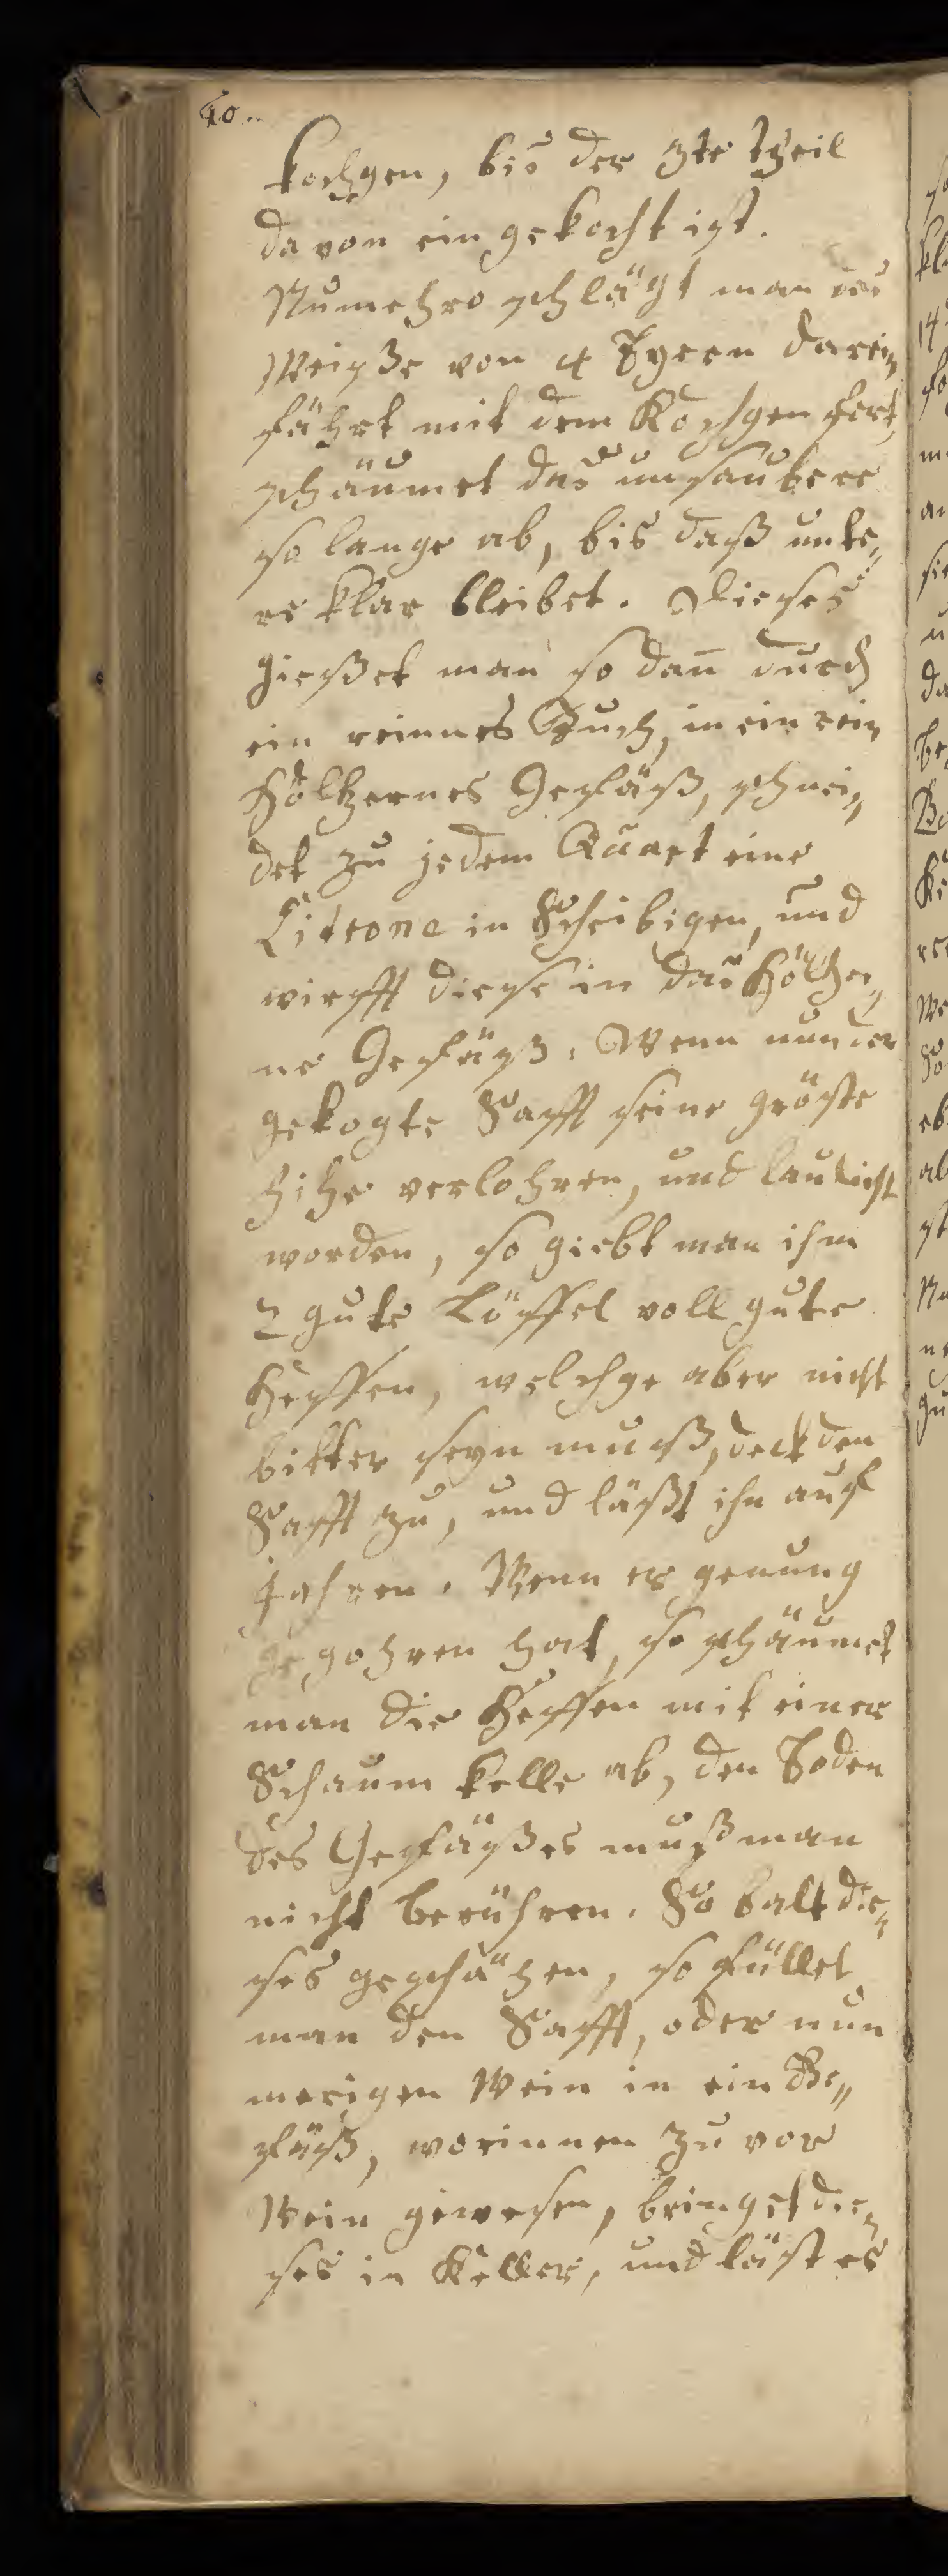 40..
kochgen, bis der 3te theil
davon ein gekocht ist.
Numehro schlägt man das
Weisße von 4 Eyern darein
fährt mit dem Kochgen fort,
schäumet das unsaubere
so lange ab, bis daß unte„
re klar bleibet. Dieses
gießet man so dañ durch
ein reinnes Tuch, in ein rein
höltzernes Gefäß, schnei„
det zu jedem Quart eine
Citrone in Scheibigen, und
wirfft diese in das höltzer„
ne Gefäß. Wenn nun der
gekogte Safft seine gröste
hitze verlohren, und laulicht
worden, so giebt man ihm
2 gute Löffel voll gute
Heffen, welchge aber nicht
bitter seyn muß, deckt den
Safft zu, und läßt ihn auf
gahren. Wenn er genung
gegohren hat, so schäumet
man die Heffen mit einer
Schaum kelle ab, den Boden
des Gefäßes muß man
nicht berühren. So balt die„
ses geschähen, so füllet
man den Safft, oder nun
merigen Wein in ein Ge„
fäß, worinnen zu vor
Wein gewesen, bringet die„
ses in Keller, und läst es